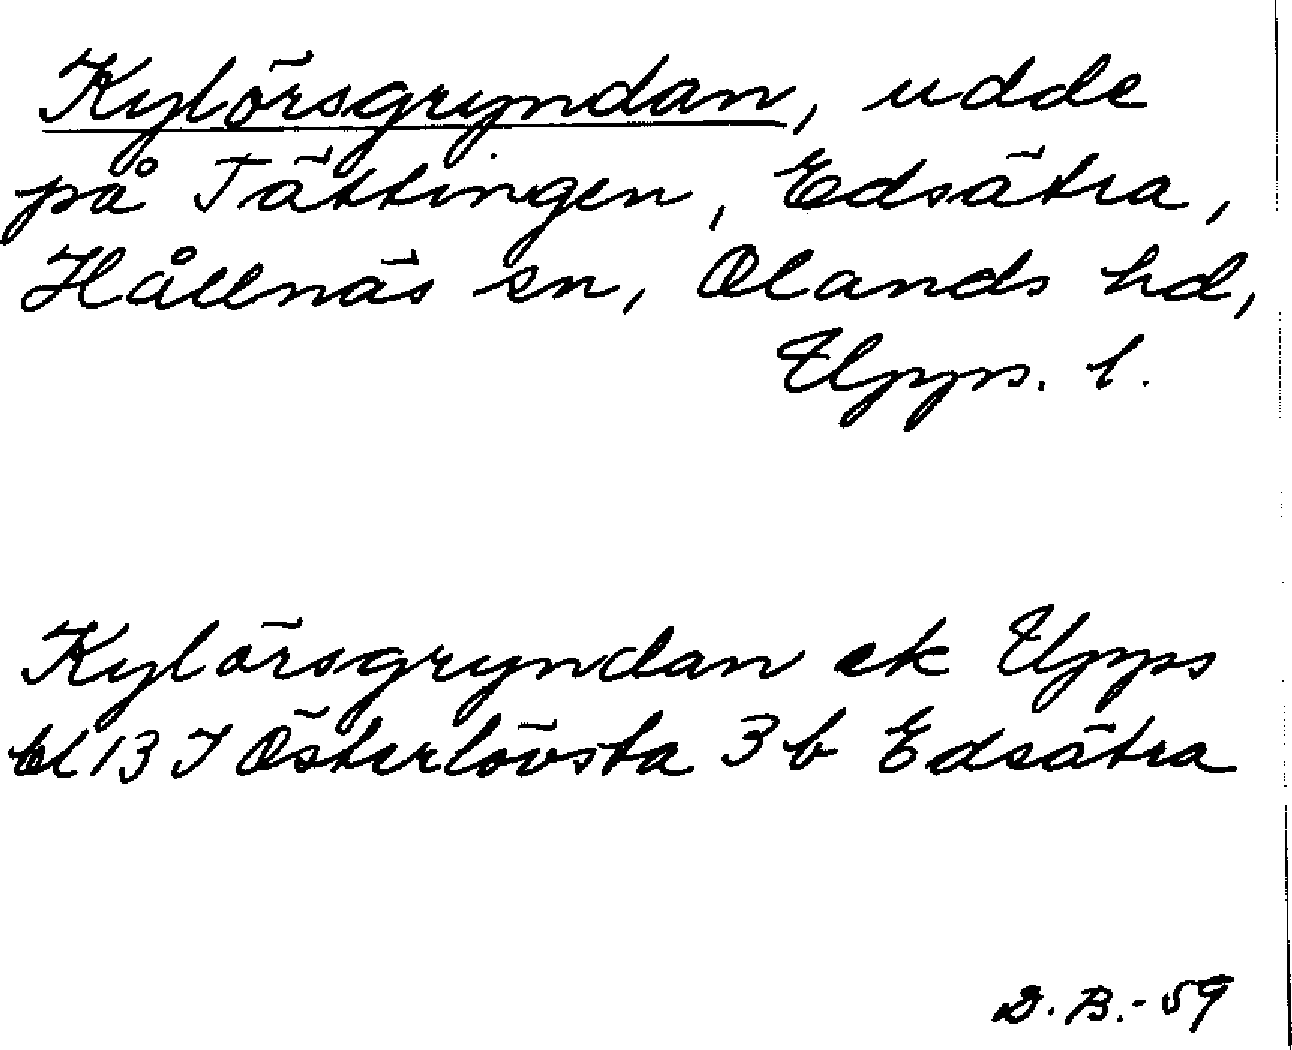 Kylörsgryndan, udde
på Tättingen, Edsätra,
Hållnäs sn, Olands hd,
Upps. l.
Kylörsgryndan ek Upps
bl 13 I Österlövsta 3 b Edsätra
D. B. - 59